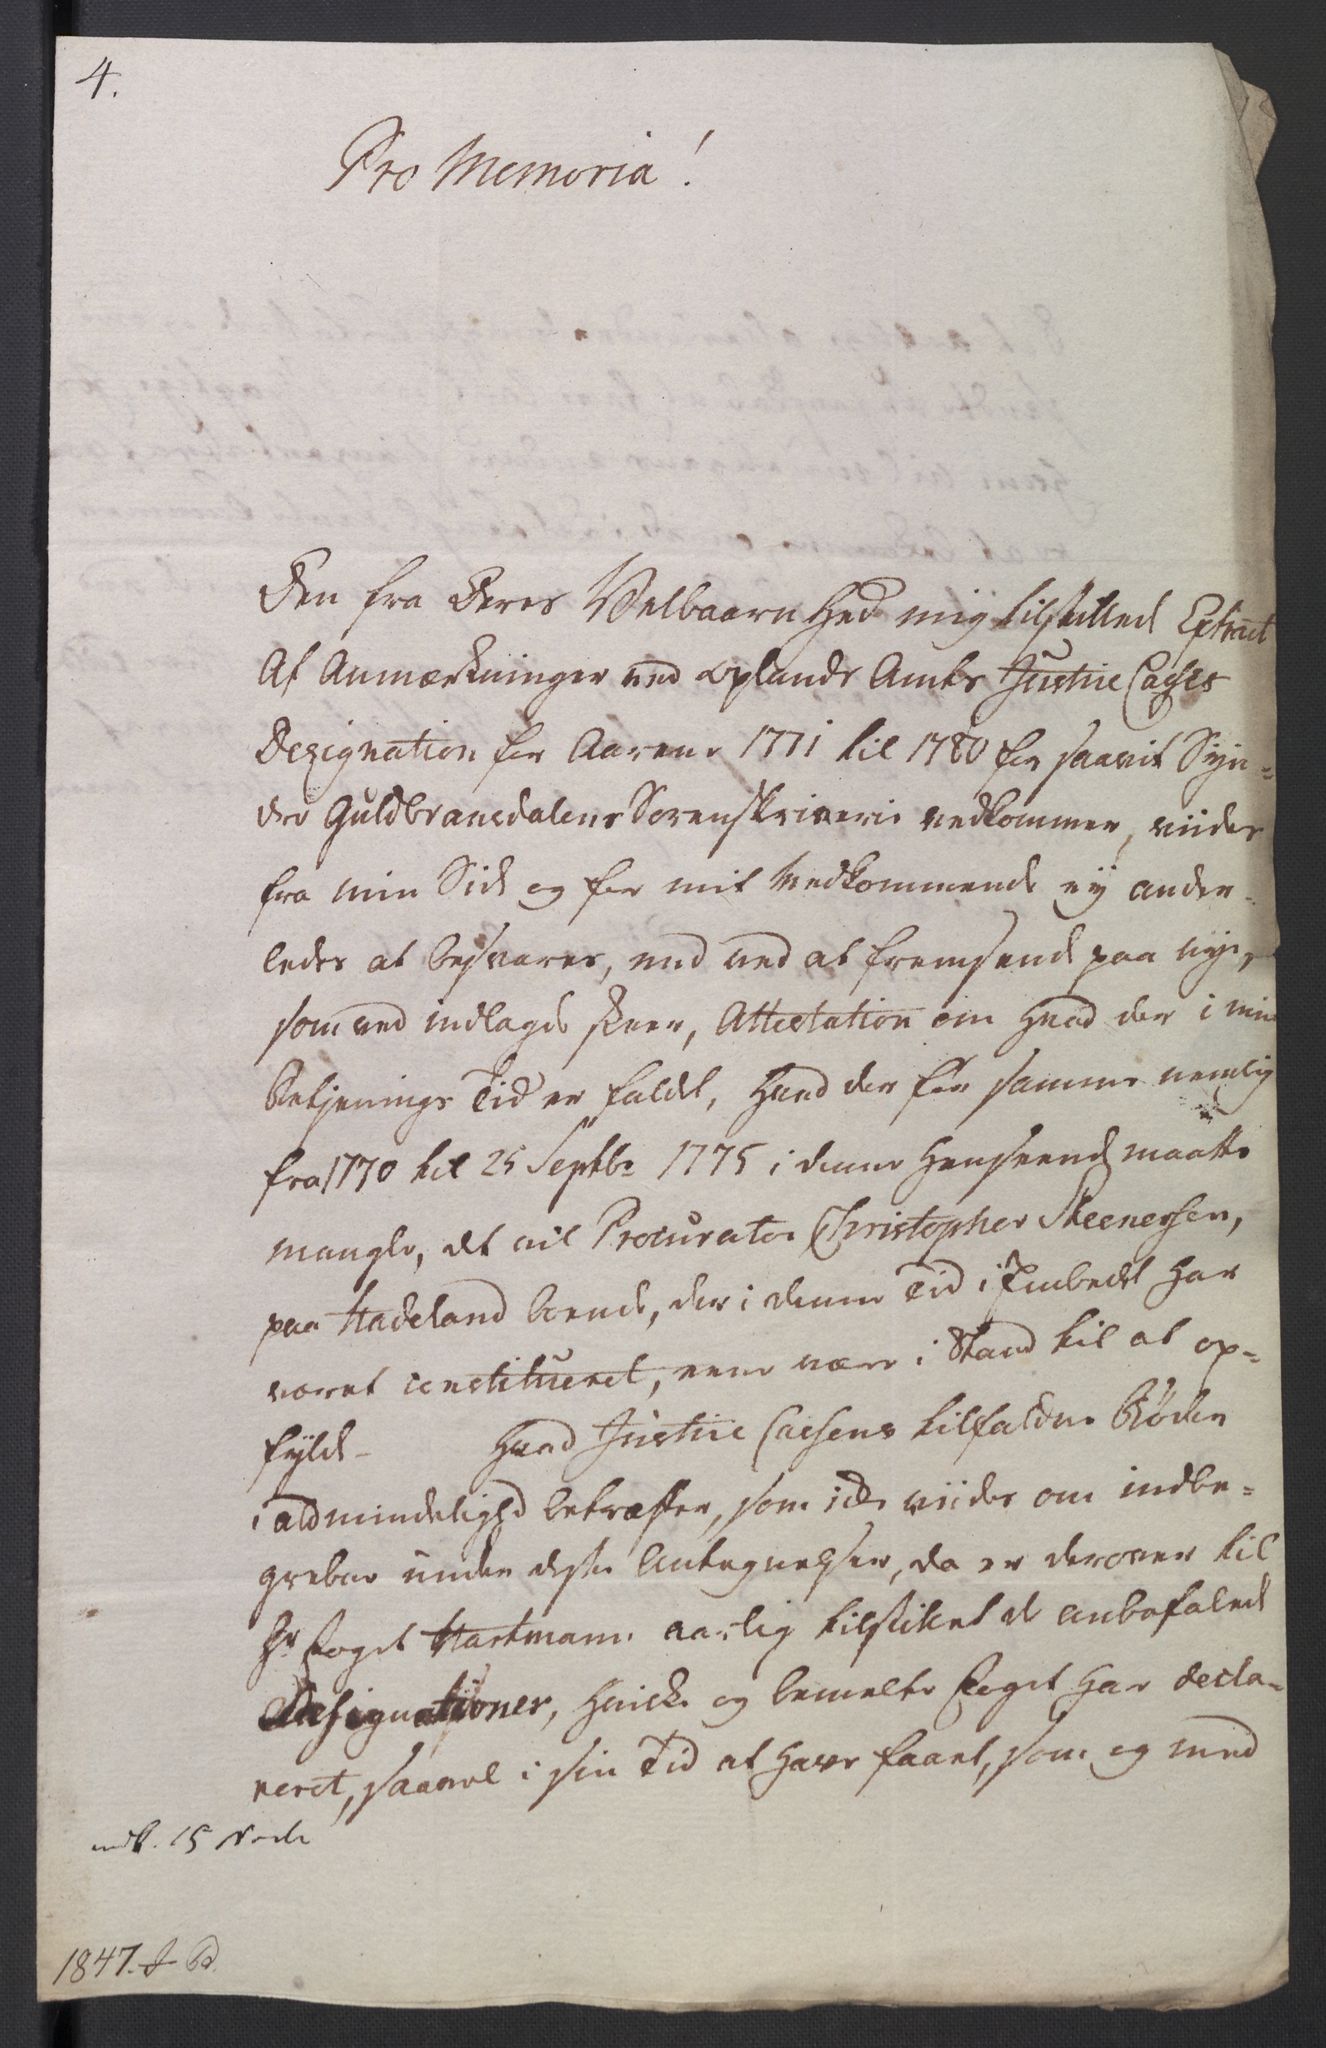 4.
Pro Memoria!
Den fra Deres Velbaarnhed mig tilstillede Extract
Af Anmærkninger ved Oplands Amts Justice Casses
Designation for Aarene 1771 til 1780 for saavit Syn-
dre Guldbransdalens Sorenskriverie vedkommer, viides
fra min Side og for mit Vedkommende ey ander-
ledes at besvares, end ved at fremsende paa nye,
som ved indlagde skeer, Attestation om hvad der i min
Betjenings Tid er faldt, hvad der for samme nemlig
fra 1770 til 25 Septbr 1775 i denne henseende maatte
mangle, det vil Procurator Christopher Steenersen,
paa Hadeland boende, der i denne Tid i Embedet har
været constitueret, være i Stand til at op-
fylde – hvad Justice Cassens tilfaldne Bøder
i aldmindelighed betræffer, som icke viides om indbe-
greber under disse Antegnelser, da er derover til
Hr Foged Hartmann aarlig tilstillet de anbefalede
Designationer, hvicke og bemelte Foged har decla-
reret, saavel i sin Tid at have faaet, som og med
indk. 15 Novbr
1847. J B.